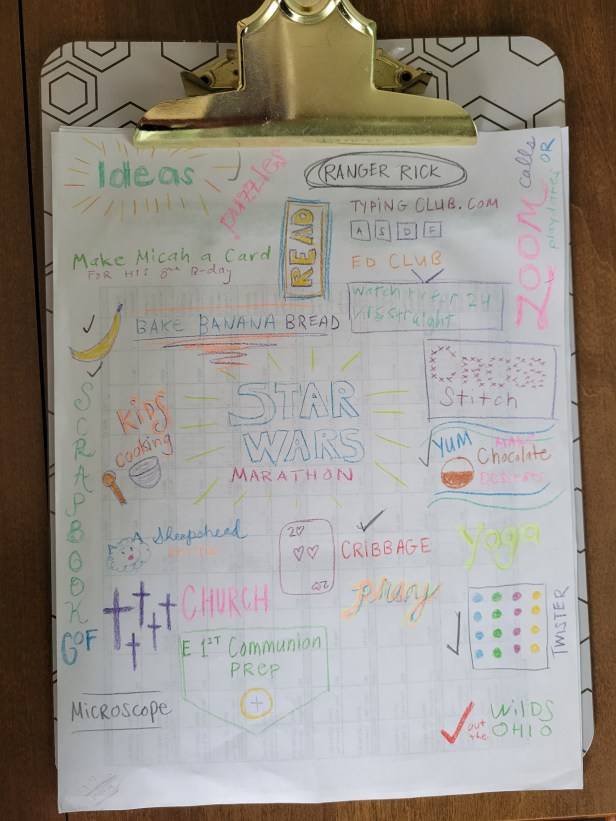 Ideas
puzzles
RANGER RICK
READ
TYPING CLUB.COM
A S D F
ED CLUB
ZOOM calls OR
playdates
Make Micah a Card
FOR HIS B-day
Watch tv for 24
straight
BAKE BANANA BREAD
SCRAPBOOK
GOF
KIDS
cooking
STAR
WARS
MARATHON
CROSS
Stitch
YUM
Chocolate
Sheepshead
2♡
♡♡
CRIBBAGE
Yoga
CHURCH
pray
TWISTER
E 1ST Communion
PREP
Microscope
out
the
WilDS
OHIO